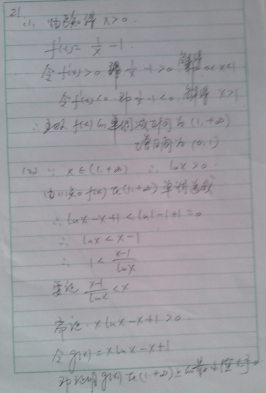 21
(1) 由题知得 x>0
f'(x)=1/x-1
令f'(x)>0 即1/x-1>0 解得 0<x<1
令f'(x)<0 即1/x-1<0 解得 x>1
∴ f(x)的 减区间为(1,+∞)
增区间为(0,1)
(2) ∵ x∈(1,+∞) ∴ lnx>0
由(1)知 f(x)在(1,+∞)单调递减
∴ lnx-x+1<ln1-1+1=0
∴ lnx<x-1
∴ 1<(x-1)/lnx
要证 (x-1)/lnx<x
即证 xlnx-x+1>0
令g(x)=xlnx-x+1
即证明g(x)在(1,+∞)上